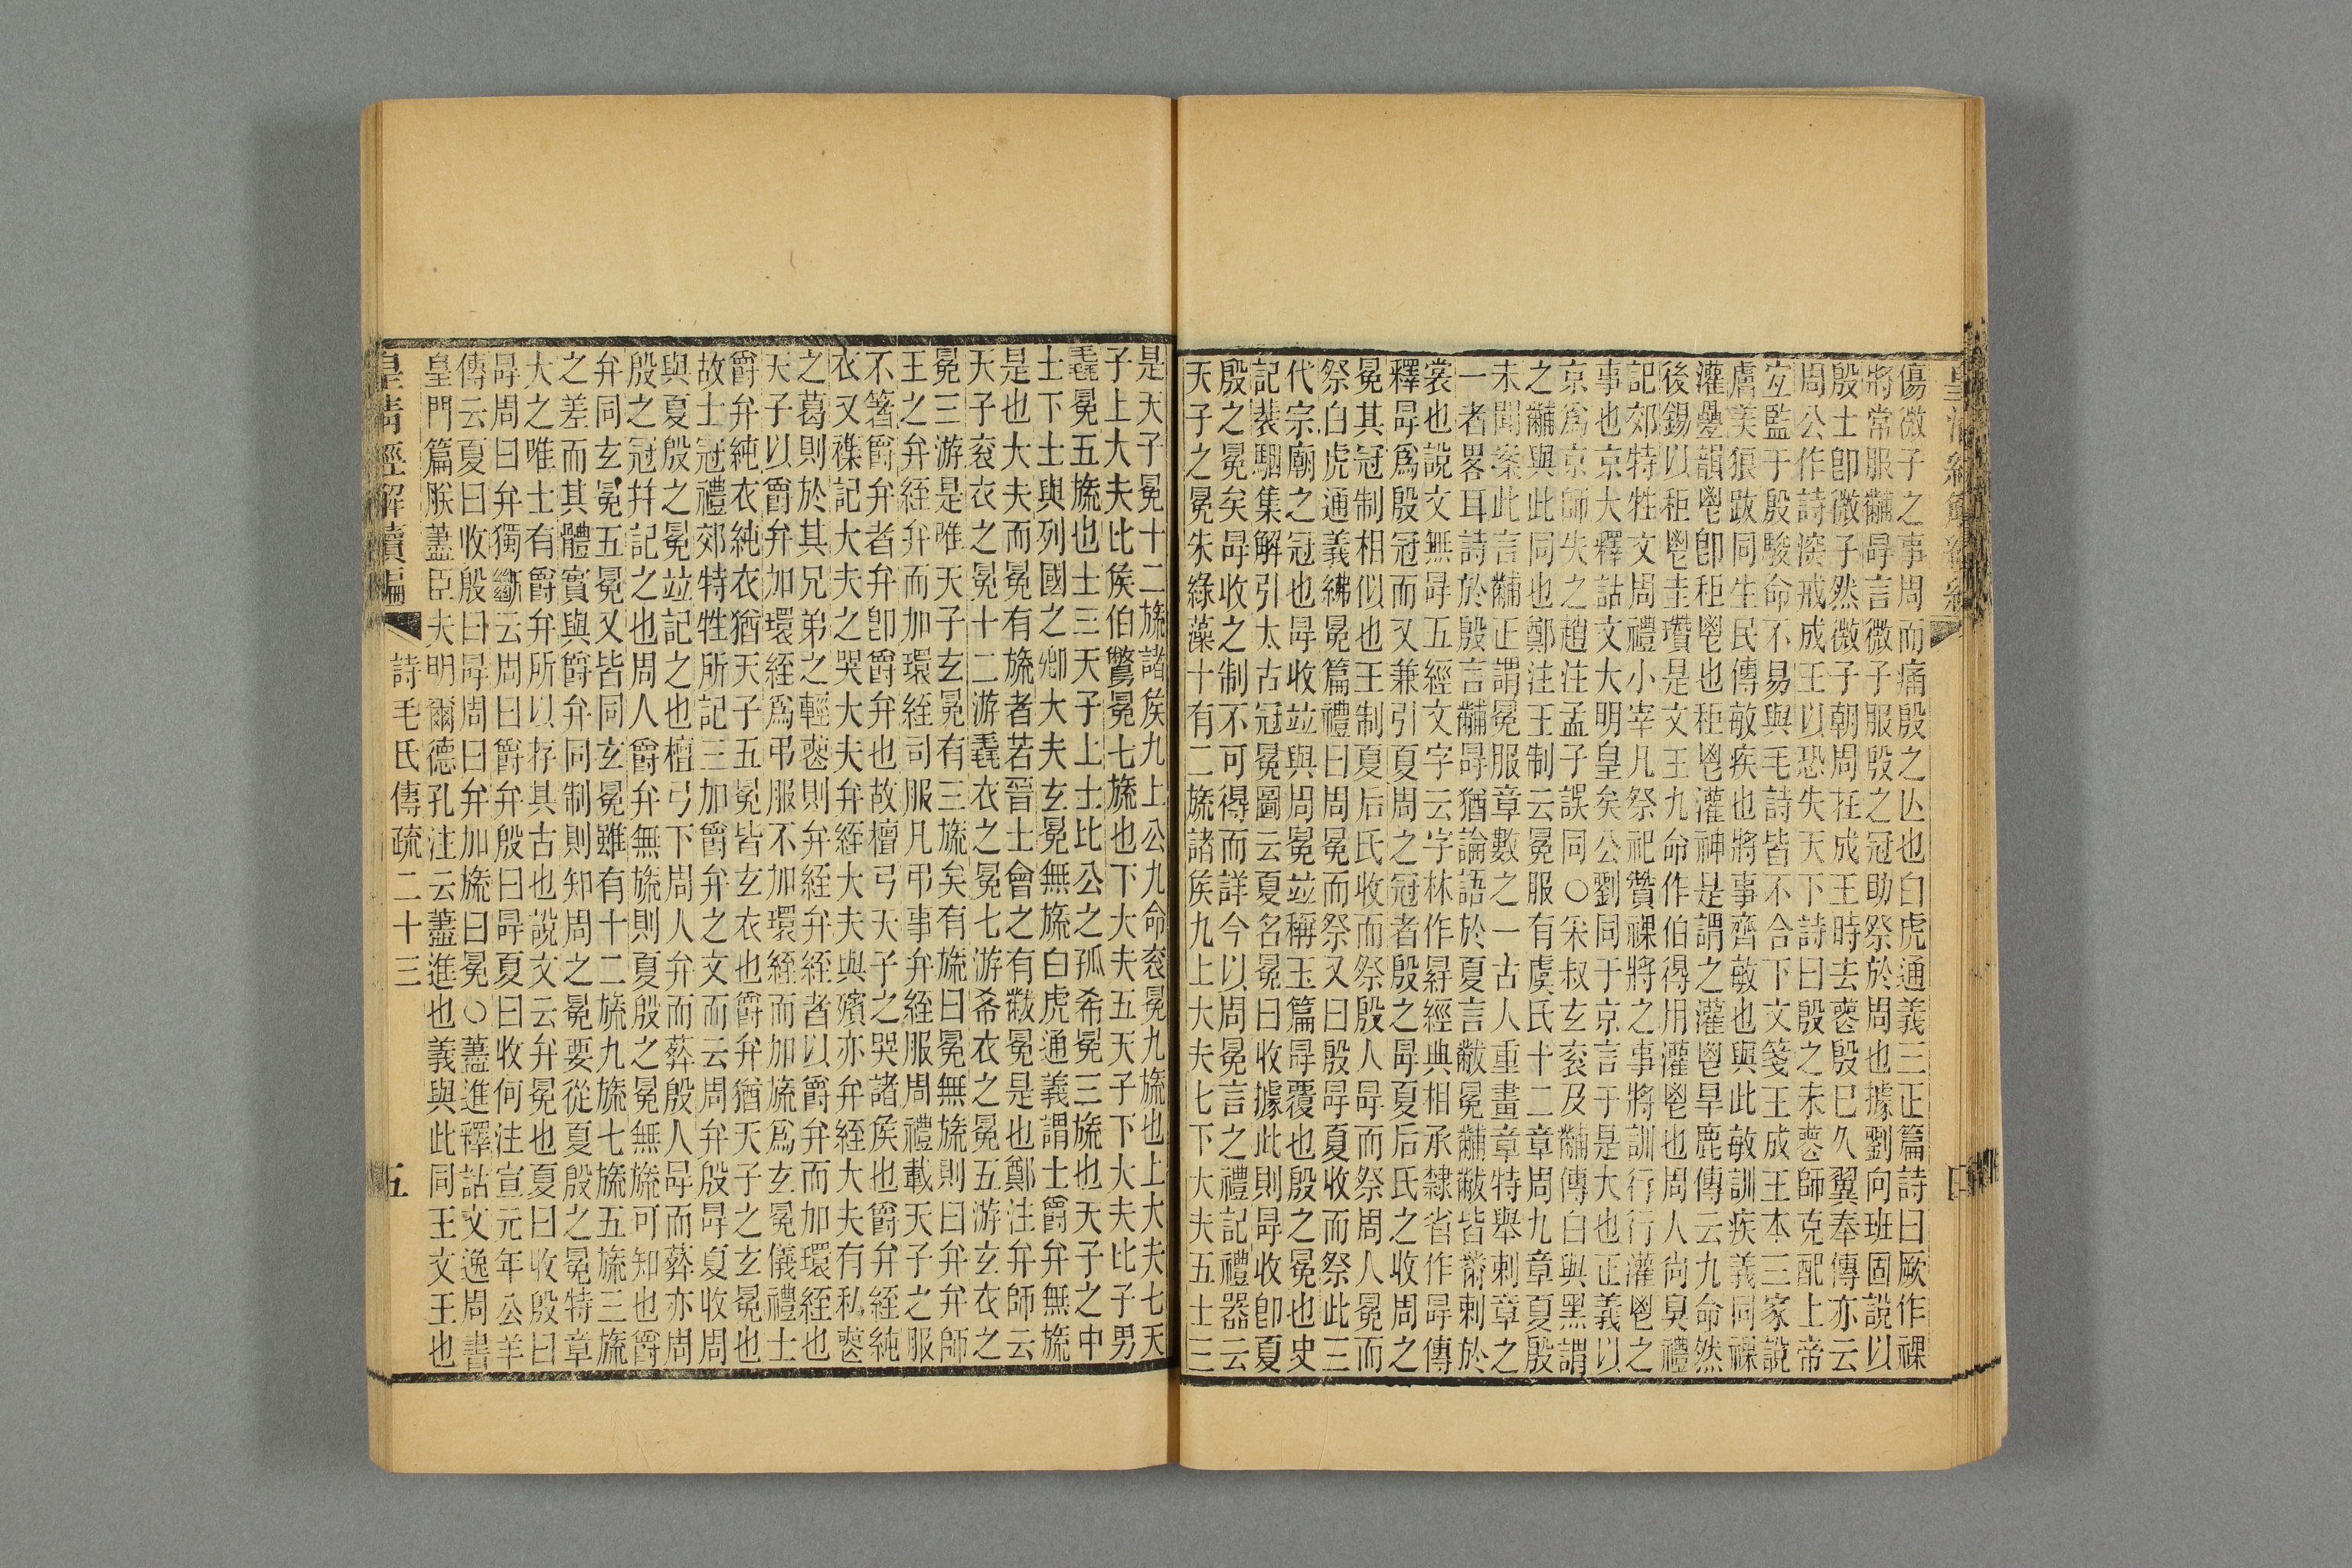 傷微子之事周而痛殷之亾也白虎通義三正篇詩曰厥作祼
將常服黼冔言微子服殷之冠助祭於周也據劉向班固說以
殷士卽微子然微子朝周在成王時去䘮殷已久翼奉傳亦云
周公作詩㴱戒成王以恐失天下詩曰殷之未䘮師克配上帝
宐監于殷駿命不易與毛詩皆不合下文箋王成王本三家說
膚美狼跋同生民傳敏疾也將事齊敏也與此敏訓疾義同祼
灌鬯韻鬯卽秬鬯也秬鬯灌神是謂之灌鬯旱鹿傳云九命然
後錫以秬鬯圭瓚是文王九命作伯得用灌鬯也周人尙臭禮
記郊特牲文周禮小宰凡祭祀贊祼將之事將訓行行灌鬯之
事也京大釋詁文大明皇矣公劉同于京言于是大也正義以
京爲京師失之趙注孟子誤同○宷叔玄衮及黼傳白與黑謂
之黼與此同也鄭注王制云冕服有虞氏十二章周九章夏殷
未聞案此言黼正謂冕服章數之一古人重畫章特舉刺章之
一者畧耳詩於殷言黼冔猶論語於夏言黻冕黼黻皆黹刺於
裳也說文無冔五經文字云字林作冔經典相承隸省作冔傳
釋冔爲殷冠而又兼引夏周之冠者殷之冔夏后氏之收周之
冕其冠制相似也王制夏后氏收而祭殷人冔而祭周人冕而
祭白虎通義紼冕篇禮曰周冕而祭又曰殷冔夏收而祭此三
代宗廟之冠也冔收竝與周冕竝稱玉篇冔覆也殷之冕也史
記裴駰集解引太古冠冕圖云夏名冕曰收據此則冔收卽夏
殷之冕矣冔收之制不可得而詳今以周冕言之禮記禮器云
天子之冕朱綠藻十有二旒諸矦九上大夫七下大夫五士三
是天子冕十二旒諸矦九上公九命衮冕九旒也上大夫七天
子上大夫比矦伯鷩冕七旒也下大夫五天子下大夫比子男
毳冕五旒也士三天子上士比公之孤希冕三旒也天子之中
士下士與列國之卿大夫玄冕無旒白虎通義謂士爵弁無旒
是也大夫而冕有旒者若晉士會之有黻冕是也鄭注弁師云
天子衮衣之冕十二游毳衣之冕七游希衣之冕五游玄衣之
冕三游是唯天子玄冕有三旒矣有旒曰冕無旒則曰弁弁師
王之弁絰弁而加環絰司服凡弔事弁絰服周禮載天子之服
不箸爵弁者弁卽爵弁也故檀弓天子之哭諸矦也爵弁絰純
衣又襍記大夫之哭大夫弁絰大夫與殯亦弁絰大夫有私䘮
之葛則於其兄弟之輕䘮則弁絰弁絰者以爵弁而加環絰也
天子以爵弁加環絰爲弔服不加環絰而加旒爲玄冕儀禮士
爵弁純衣純衣猶天子五冕皆玄衣也爵弁猶天子之玄冕也
故士冠禮郊特牲所記三加爵弁之文而云周弁殷冔夏收周
與夏殷之冕竝記之也檀弓下周人弁而葬殷人冔而葬亦周
殷之冠幷記之也周人爵弁無旒則夏殷之冕無旒可知也爵
弁同玄冕五冕又皆同玄冕雖有十二旒九旒七旒五旒三旒
之差而其體實與爵弁同制則知周之冕要從夏殷之冕特章
大之唯士有爵弁所以存其古也說文云弁冕也夏曰收殷曰
冔周曰弁獨斷云周曰爵弁殷曰冔夏曰收何注宣元年公羊
傳云夏曰收殷曰冔周曰弁加旒曰冕○藎進釋詁文逸周書
皇門篇朕藎臣夫明爾德孔注云藎進也義與此同王文王也
皇淸經解續編
詩毛氏傳疏二十三
五